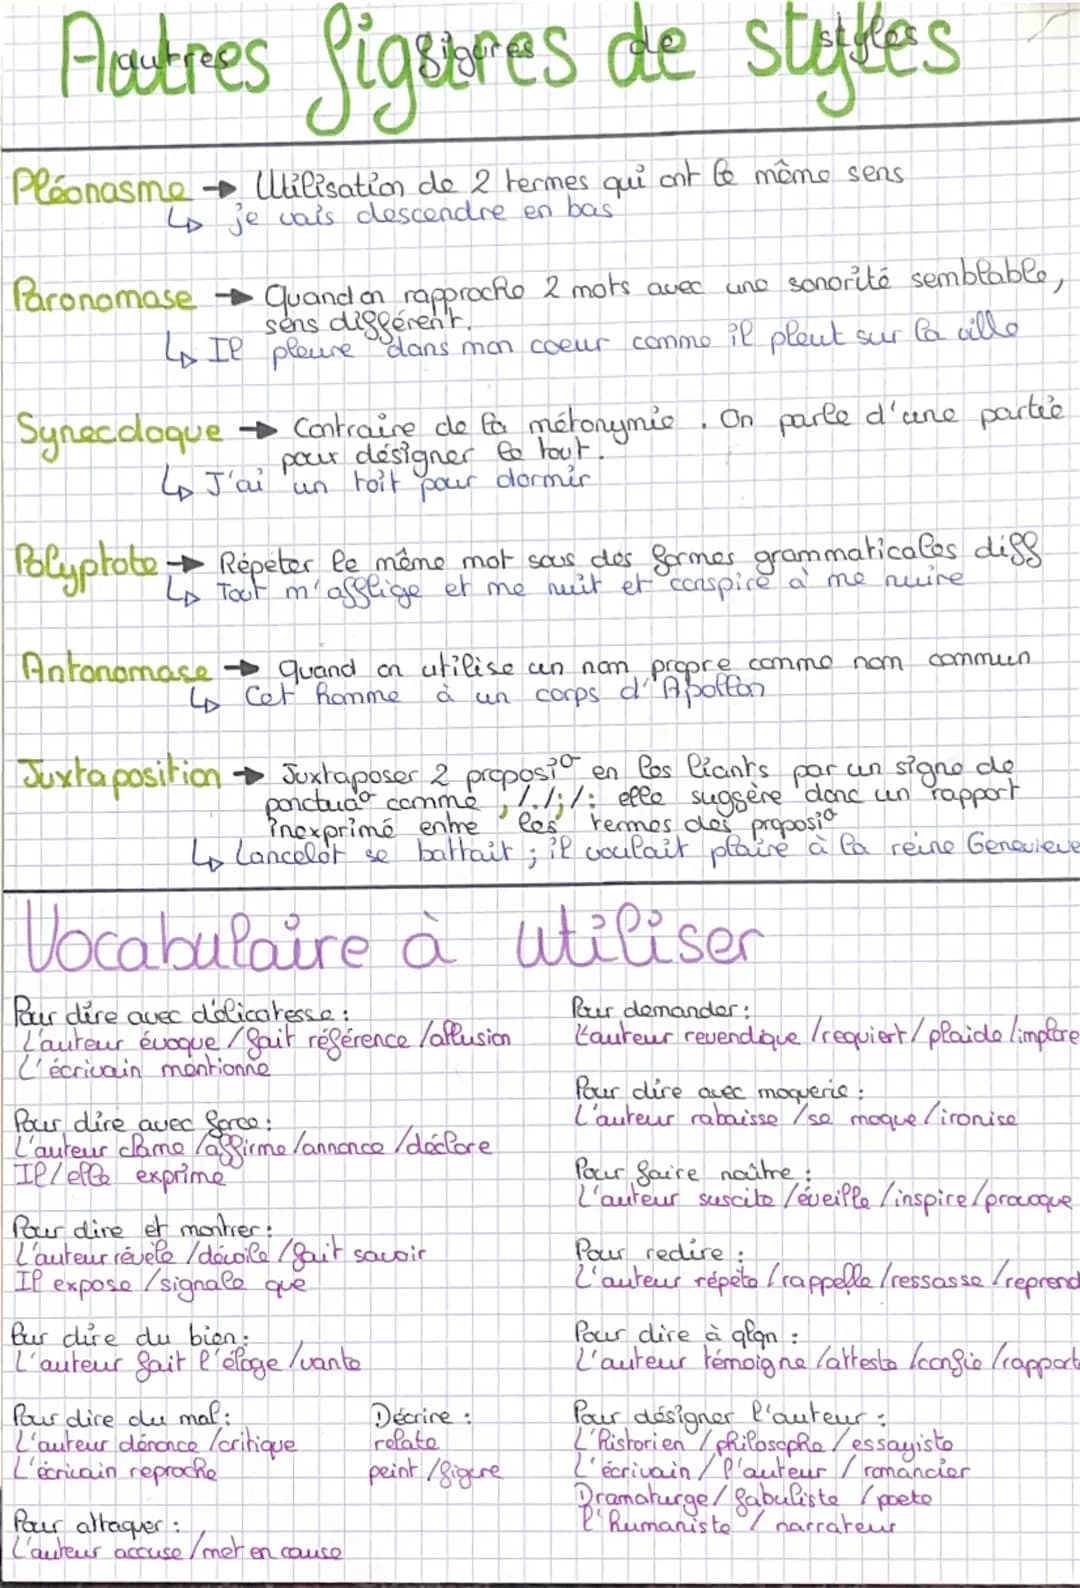 Autres figures de styles
Pléonasme → Utilisation de 2 termes qui ont le même sens
↳ je vais descendre en bas
Paronomase → Quand on rapproche 2 mots avec une sonorité semblable,
sens différent.
↳ Il pleure dans mon coeur comme il pleut sur la ville
Synecdoque → Contraire de la métonymie. On parle d'une partie
pour désigner le tout.
↳ J'ai un toit pour dormir
Polyptote → Répéter le même mot sous des formes grammaticales diff
↳ Tout m'afflige et me nuit et conspire à me nuire
Antonomase → quand on utilise un nom propre comme nom commun
↳ Cet homme à un corps d'Apollon
Juxtaposition → Juxtaposer 2 proposi° en les liants par un signe de
ponctua° comme , /./;/: elle suggère donc un rapport
inexprimé entre les termes des proposi°
↳ Lancelot se battait ; il voulait plaire à la reine Genevieve
Vocabulaire à utiliser
Pour dire avec délicatesse :
L'auteur évoque / fait référence / allusion
L'écrivain mentionne
Pour dire avec force :
L'auteur clame / affirme / annonce / déclare
Il / elle exprime
Pour dire et montrer :
L'auteur révèle / dévoile / fait savoir
Il expose / signale que
Pour dire du bien :
L'auteur fait l'éloge / vante
Pour dire du mal :
L'auteur dénonce / critique
L'écrivain reproche
Décrire :
relate
peint / figure
Pour attaquer :
L'auteur accuse / met en cause
Pour demander :
L'auteur revendique / requiert / plaide / implore
Pour dire avec moquerie :
L'auteur rabaisse / se moque / ironise
Pour faire naître :
L'auteur suscite / éveille / inspire / provoque
Pour redire :
L'auteur répète / rappelle / ressasse / reprend
Pour dire à qlqn :
L'auteur témoigne / atteste / confie / rapport
Pour désigner l'auteur :
L'historien / philosophe / essayiste
L'écrivain / l'auteur / romancier
Dramaturge / fabuliste / poete
l'humaniste / narrateur